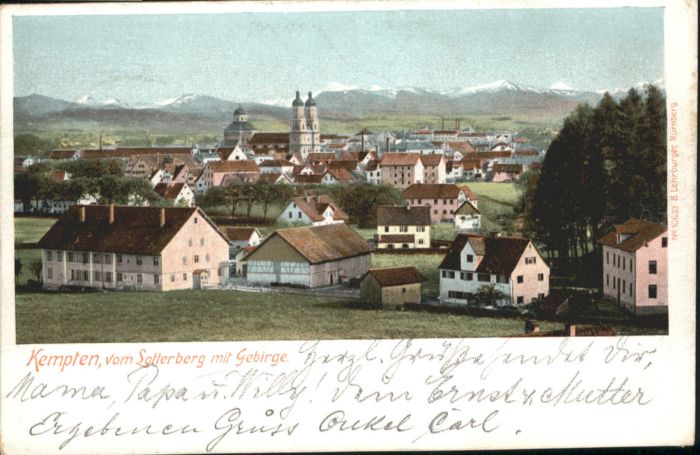 Kempten, vom Lotterberg mit Gebirge. Herzl. Grüße sendet Dir,
Mama, Papa u. Willy! Dein Ernst & Mutter
Ergebenen Gruss Onkel Carl.
No 10633 B. Lehrburger, Nürnberg.